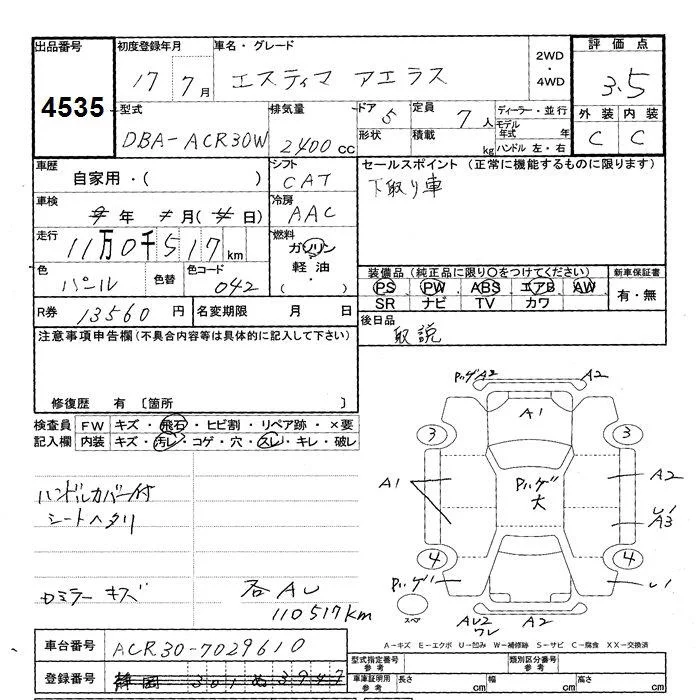 出品番号 初度登録年月 車名・グレード 2WD・4WD 評価点
4535 17 7月 エスティマ アエラス 3.5
型式 排気量 ドア 5 定員 7人 ディーラー・並行 外装 内装
DBA-ACR30W 2400cc 形状 積載 kg モデル年式 年 ハンドル 左・右 C C
車歴 シフト セールスポイント (正常に機能するものに限ります)
自家用・( ) CAT 下取り車
車検 年 月( 日) 冷房 AAC
走行 11万0千517km 燃料 ガソリン
色 パール 色替 色コード 042 軽油・( )
装備品 (純正品に限り○をつけてください) 新車保証書
PS PW ABS エアB AW 有・無
SR ナビ TV カワ
R券 13560円 名変期限 月 日
後日品 取説
注意事項申告欄(不具合内容等は具体的に記入して下さい)
修復歴 有 〔箇所 〕
検査員 FW キズ・飛石・ヒビ割・リペア跡・×要
記入欄 内装 キズ・汚レ・コゲ・穴・スレ・キレ・破レ
ハンドルカバー付
シートヘタリ
ロミラー キズ 各AU
110517km
Pハゲ A2 A2
A1
3 3
A1 Pハゲ 大 A2
A3
4 4
Pハゲ
スペア AU2 ワレ A2
A-キズ E-エクボ U-凹み W-補修跡 S-サビ C-腐食 XX-交換済
車台番号 ACR30-7029610 型式指定番号 参考 類別区分番号 参考
登録番号 静岡 301 ぬ 3947 車庫証明用 参考 長さ cm 幅 cm 高さ cm